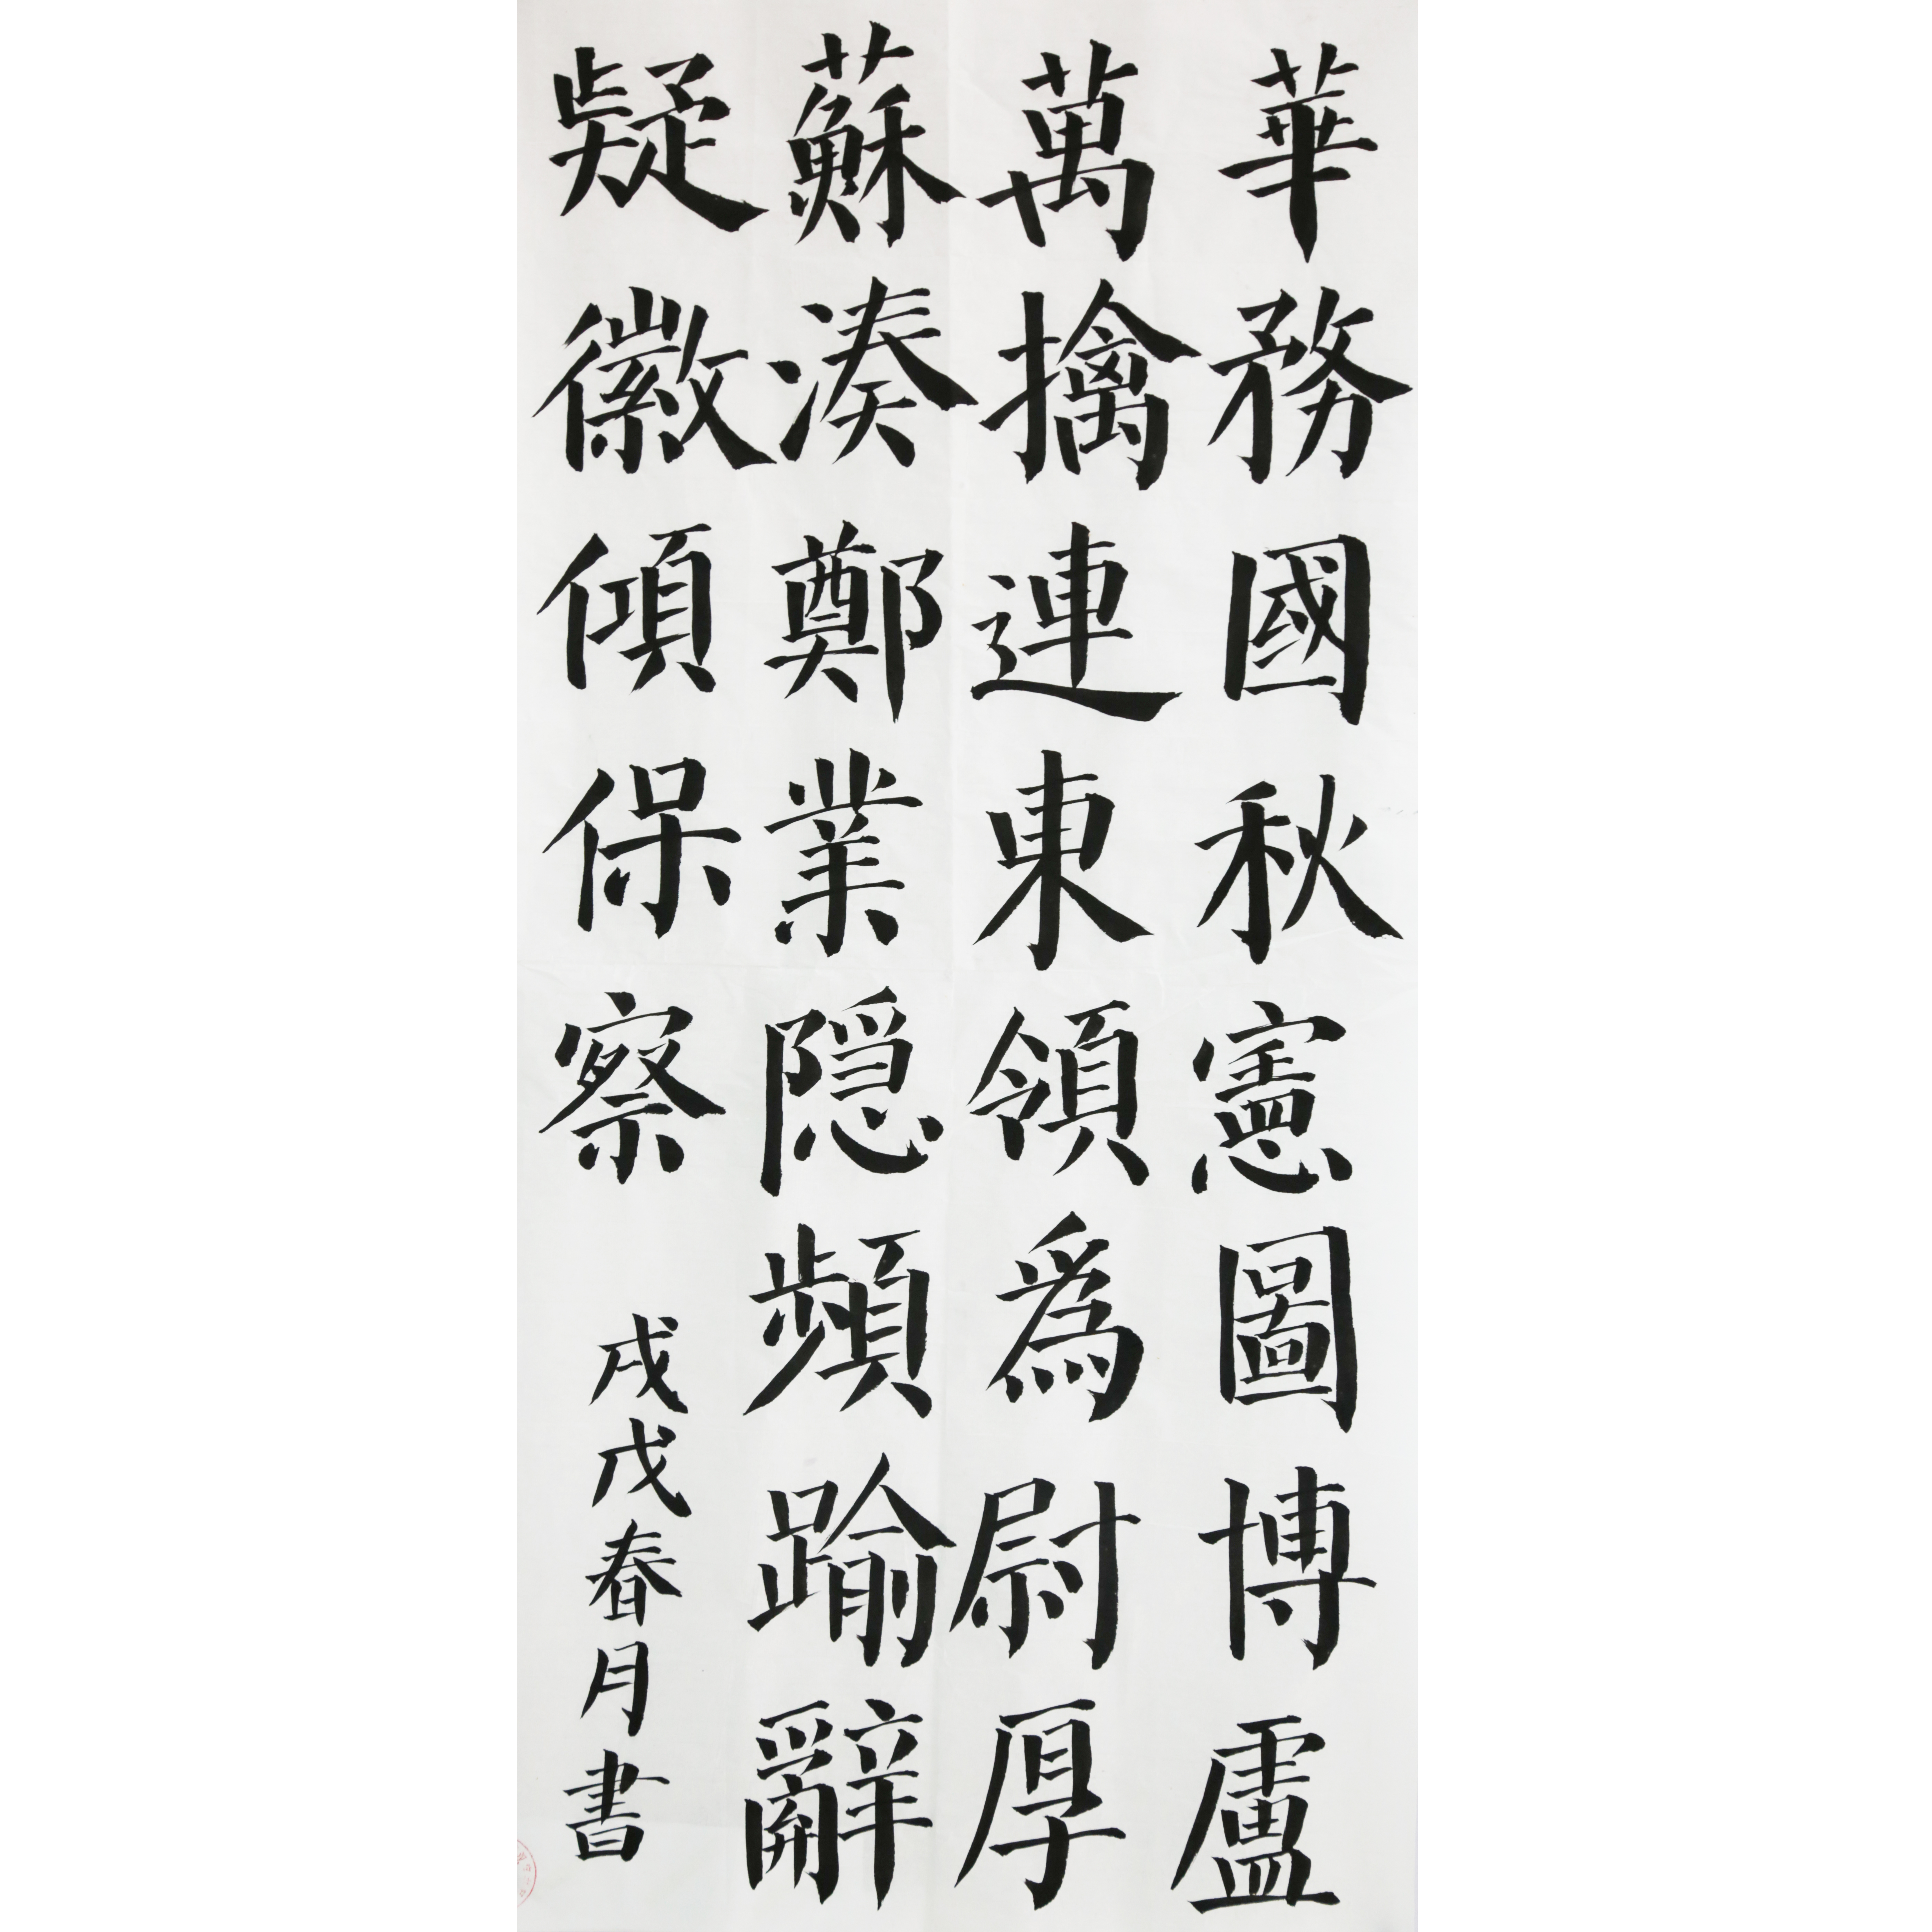 華務國秋憲圖博盧
萬擒連東領爲尉厚
蘇湊鄭業隠頻踰辭
疑徽傾保察
戌戊春月書